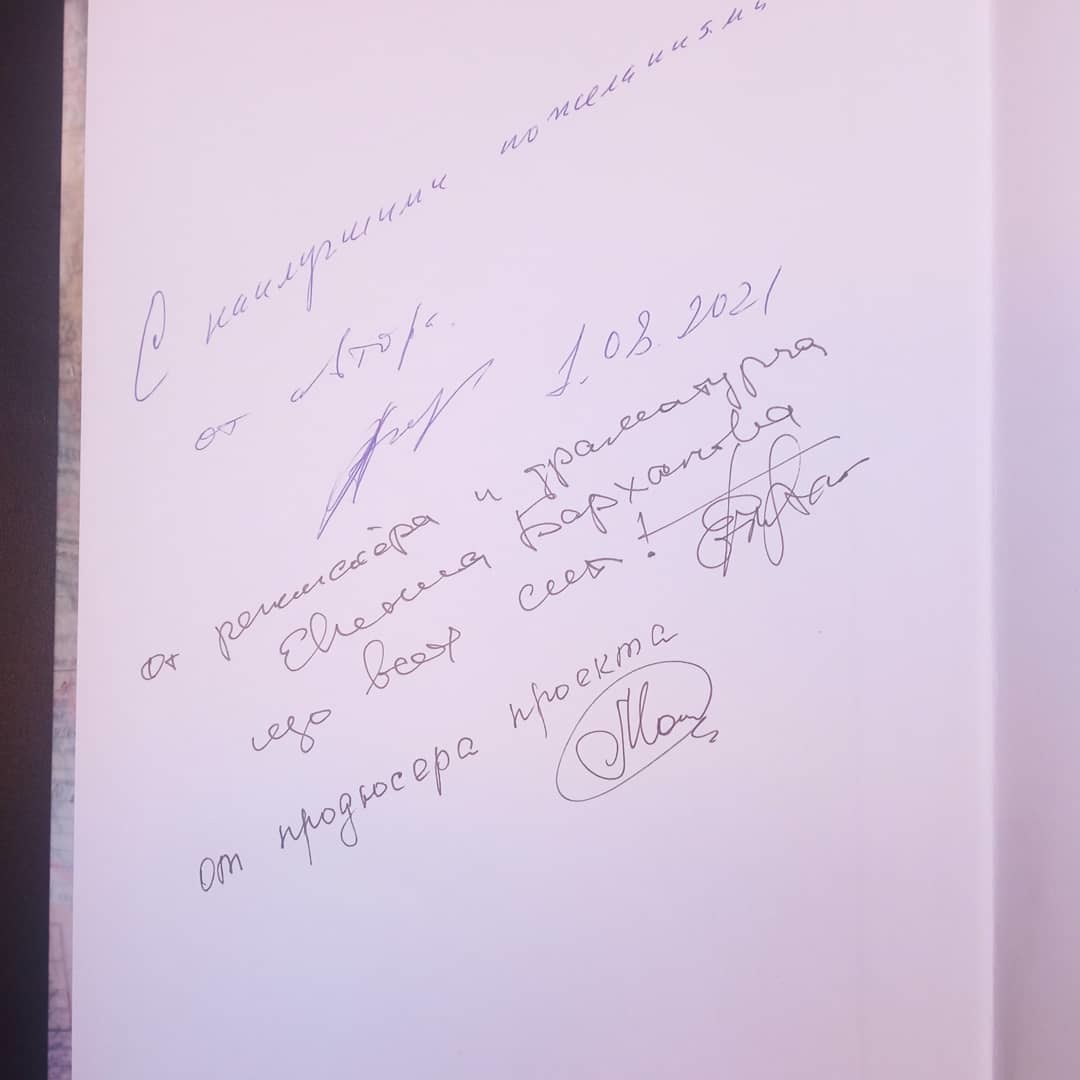 С наилучшими пожеланиями
от Автора.
1.08.2021
от режиссёра и драматурга
Евгения Барханова
изо всех сил!
от продюсера проекта